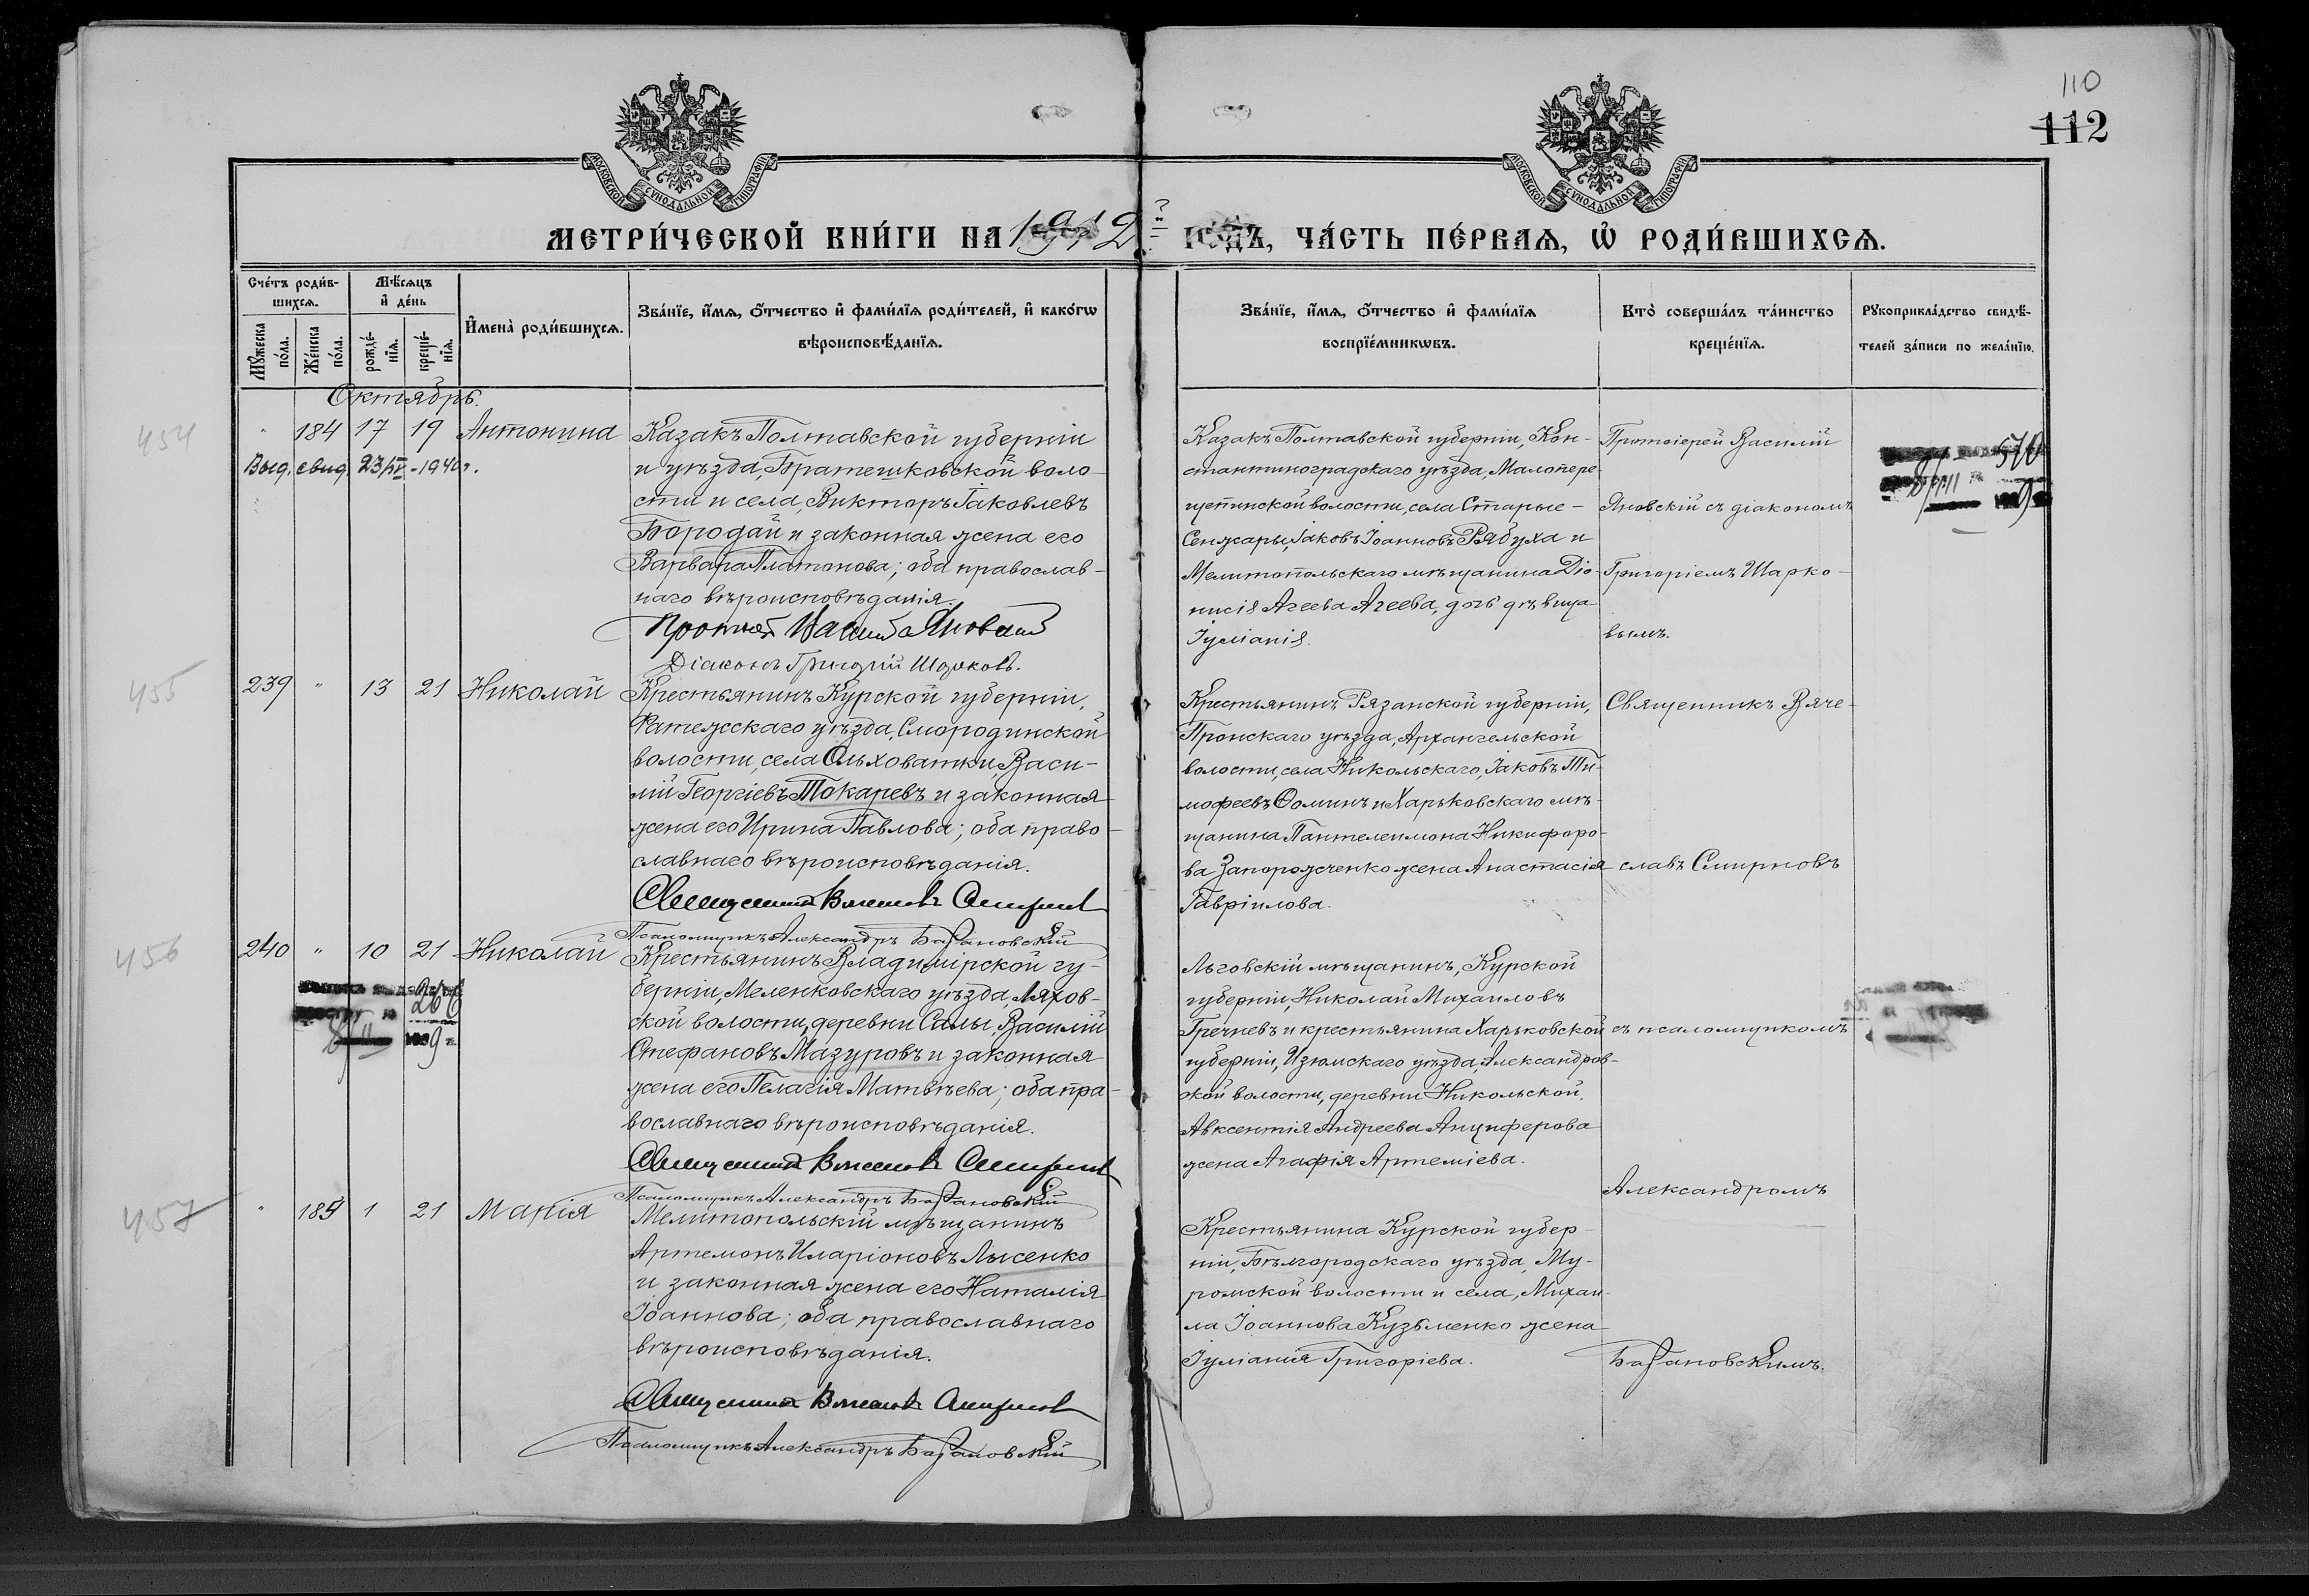 110
112
МОСКОВСКОЙ СѴНОДАЛЬНОЙ ТИПОГРАФІИ
МОСКОВСКОЙ СѴНОДАЛЬНОЙ ТИПОГРАФІИ
МЕТРИ́ЧЕСКОЙ КНИ́ГИ НА 1912й ГОДЪ, ЧА́СТЬ ПЕ́РВАѦ, Ѡ҆ РОДИ́ВШИХСѦ.
Счётъ роди́в-
шихсѧ.
Мꙋ́жеска по́ла.
Же́нска по́ла.
Мѣ́сѧцъ
и҆ де́нь
рожде́-
нїѧ.
креще́-
нїѧ.
И҆мена̀ роди́вшихсѧ.
Зва́нїе, и҆́мѧ, ѻ҆́тчество и҆ фами́лїѧ роди́телей, и҆ како́гѡ
вѣроисповѣ́данїѧ.
Зва́нїе, и҆́мѧ, ѻ҆́тчество и҆ фами́лїѧ
воспрїе́мникѡвъ.
Кто̀ соверша́лъ та́инство
креще́нїѧ.
Рꙋкоприкла́дство свидѣ́-
телей за́писи по жела́нїю.
Октябрь.
454
" 184 17 19 Антонина
Выд. свид. 23/IV-1940г.
Казакъ Полтавской губерніи
и уѣзда, Братешковской воло-
сти и села, Викторъ Іаковлевъ
Бородай и законная жена его
Варвара Платонова; оба православ-
наго вѣроисповѣданія.
Протоіерей Василій Яновскій
Діаконъ Григорій Шарковъ.
Казакъ Полтавской губерніи, Кон-
стантиноградскаго уѣзда, Малопере-
щепинской волости, села Старые-
Сенжары, Іаковъ Іоанновъ Рябуха и
Мелитопольскаго мѣщанина Діо-
нисія Агеева Агеева, дочь дѣвица
Іуліанія.
Протоіерей Василій
Яновскій съ діакономъ
Григоріемъ Шарко-
вымъ.
570
455
239 " 13 21 Николай
Крестьянинъ Курской губерніи,
Фатежскаго уѣзда, Смородинской
волости, села Ольховатки, Васи-
лій Георгіевъ Токаревъ и законная
жена его Ирина Павлова; оба право-
славнаго вѣроисповѣданія.
Священникъ Вячеславъ Смирновъ
Псаломщикъ Александръ Барановскій
Крестьянинъ Рязанской губерніи,
Пронскаго уѣзда, Архангельской
волости, села Никольскаго, Іаковъ Ти-
мофеевъ Ѳоминъ и Харьковскаго мѣ-
щанина Пантелеимона Никифоро-
ва Запорожченко жена Анастасія
Гавріилова.
Священникъ Вяче-
славъ Смирновъ
456
240 " 10 21 Николай
266
Крестьянинъ Владимірской гу-
берніи, Меленковскаго уѣзда, Ляхов-
ской волости, деревни Салы, Василій
Стефановъ Мазуровъ и законная
жена его Пелагія Матвѣева; оба пра-
вославнаго вѣроисповѣданія.
Священникъ Вячеславъ Смирновъ
Псаломщикъ Александръ Барановскій
Льговскій мѣщанинъ, Курской
губерніи, Николай Михаиловъ
Гречневъ и крестьянина Харьковской
губерніи, Изюмскаго уѣзда, Александров-
ской волости, деревни Никольской,
Авксентія Андреева Анциферова
жена Агафія Артеміева.
съ псаломщикомъ
Александромъ
457
" 185 1 21 Марія
Мелитопольскій мѣщанинъ
Артемонъ Иларіоновъ Лысенко
и законная жена его Наталія
Іоаннова; оба православнаго
вѣроисповѣданія.
Священникъ Вячеславъ Смирновъ
Псаломщикъ Александръ Барановскій
Крестьянина Курской губер-
ніи, Бѣлгородскаго уѣзда, Му-
ромской волости и села, Михаи-
ла Іоаннова Кузьменко жена
Іуліанія Григоріева.
Барановскимъ.